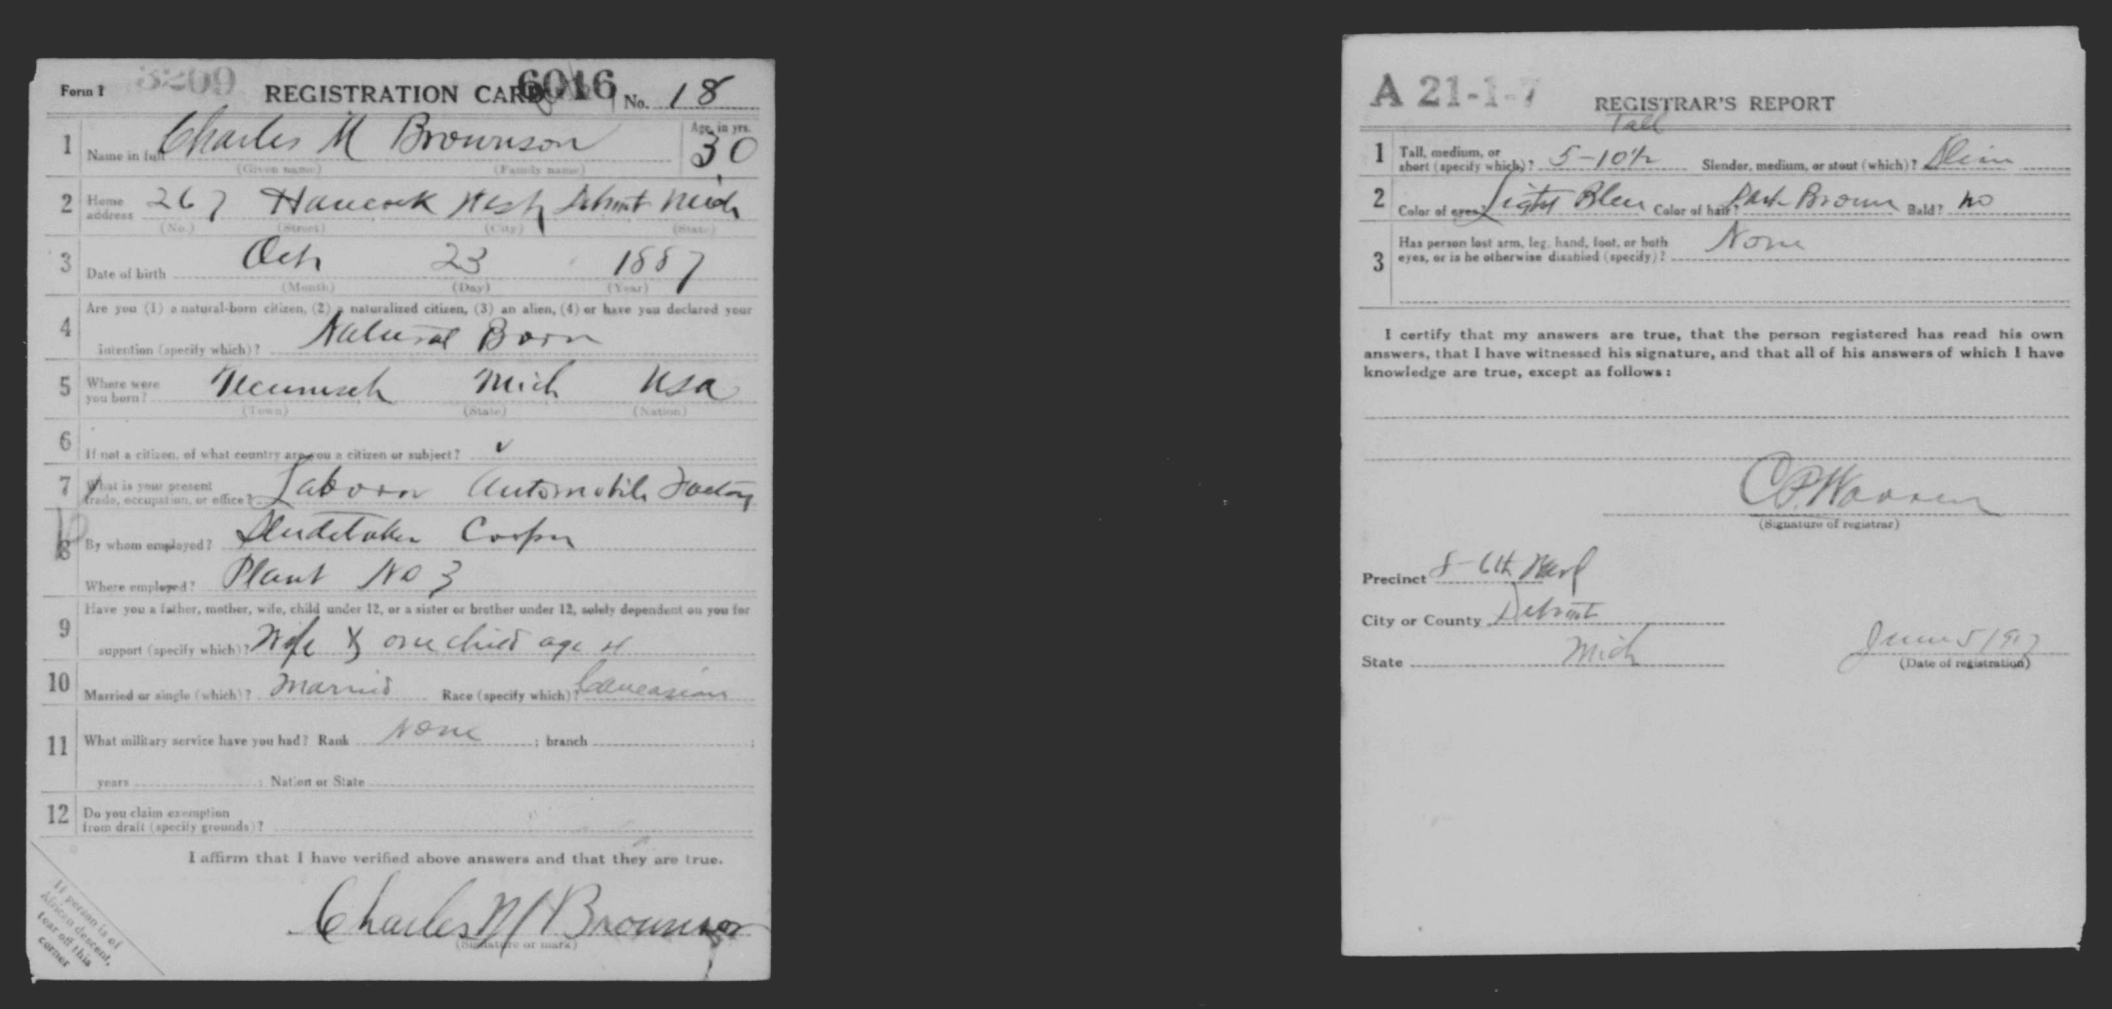 Form 1 3209 REGISTRATION CARD 6016 No. 18
1 Name in full Charles M Brownson Age, in yrs. 30
(Given name) (Family name)
2 Home address 267 Hancock West Detroit Mich
(No.) (Street) (City) (State)
3 Date of birth Oct 23 1887
(Month) (Day) (Year)
4 Are you (1) a natural-born citizen, (2) a naturalized citizen, (3) an alien, (4) or have you declared your
intention (specify which)? Natural Born
5 Where were you born? Tecumseh Mich USA
(Town) (State) (Nation)
6 If not a citizen, of what country are you a citizen or subject? ✓
7 What is your present
trade, occupation, or office? Laborer Automobile Factory
8 By whom employed? Studebaker Corpn
Where employed? Plant No 3
9 Have you a father, mother, wife, child under 12, or a sister or brother under 12, solely dependent on you for
support (specify which)? Wife & one child age
10 Married or single (which)? Married Race (specify which)? Caucasian
11 What military service have you had? Rank None ; branch ;
years ; Nation or State
12 Do you claim exemption
from draft (specify grounds)?
I affirm that I have verified above answers and that they are true.
Charles M Brownson
(Signature or mark)
If person is of
African descent,
tear off this
corner
A 21-1-7 REGISTRAR'S REPORT
Tall
1 Tall, medium, or
short (specify which)? 5-10½ Slender, medium, or stout (which)? Slim
2 Color of eyes? Light Blue Color of hair? Dark Brown Bald? no
3 Has person lost arm, leg, hand, foot, or both
eyes, or is he otherwise disabled (specify)? None
I certify that my answers are true, that the person registered has read his own
answers, that I have witnessed his signature, and that all of his answers of which I have
knowledge are true, except as follows:
C P Warren
(Signature of registrar)
Precinct 8-6th Ward
City or County Detroit
State Mich June 5 1917
(Date of registration)